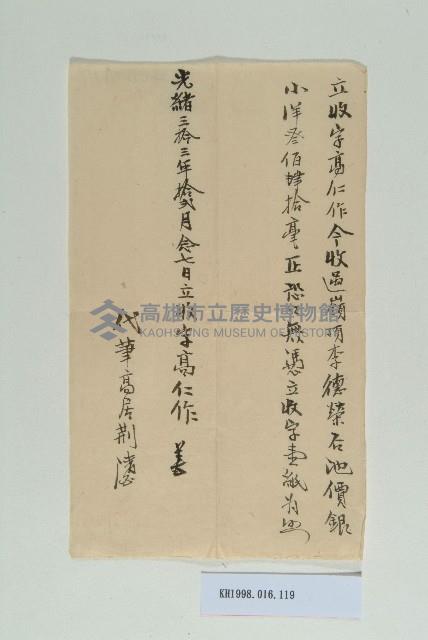 立收字高仁作今收過嶺頂李德榮石池價銀
小洋叁佰肆拾毫正恐口無憑立收字壹紙為照
光緒三拾三年拾弍月念七日立收字高仁作
代筆高居荆
高雄市立歷史博物館
KAOHSIUNG MUSEUM OF HISTORY
KH1998.016.119